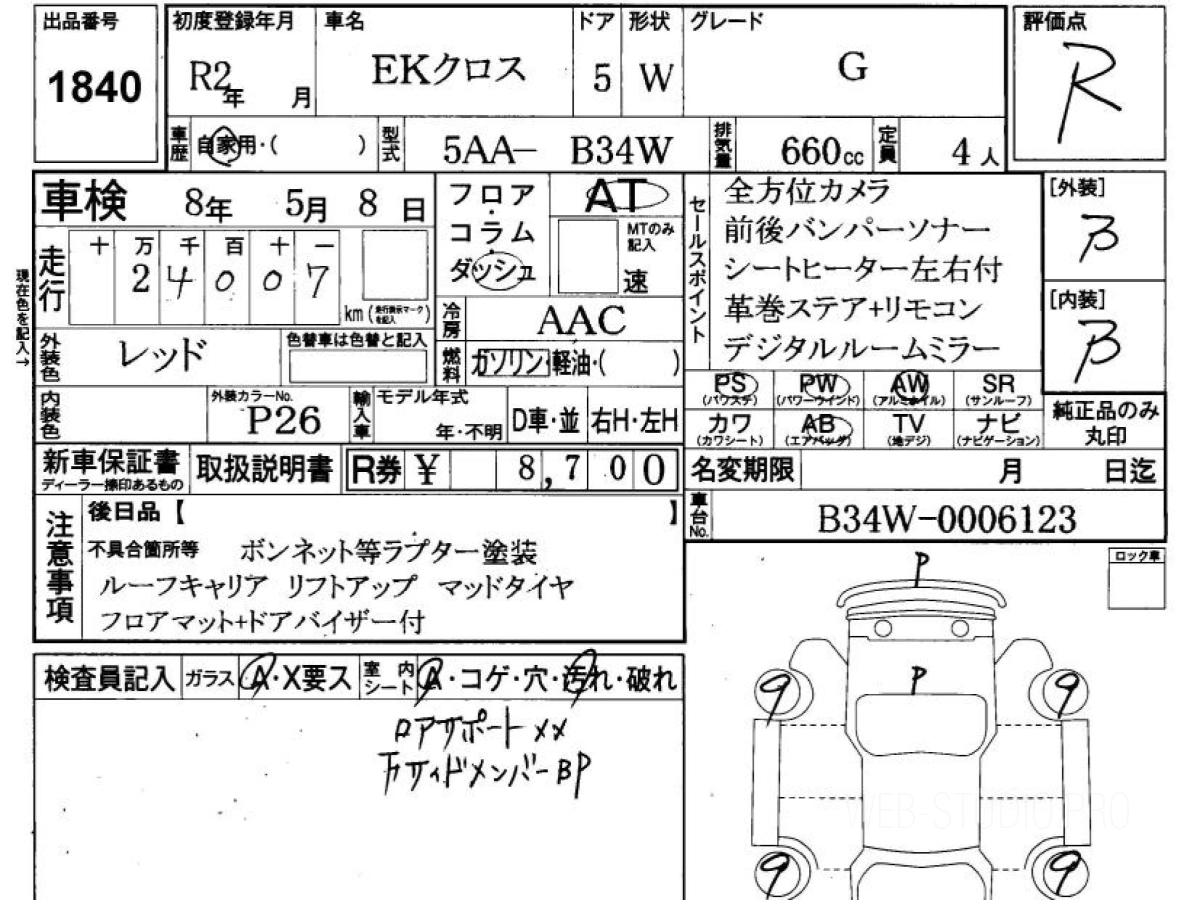 出品番号
1840
初度登録年月 車名 ドア 形状 グレード
R2年 月 EKクロス 5 W G
評価点
R
車歴 自家用・( ) 型式 5AA- B34W 排気量 660cc 定員 4人
車検 8年 5月 8日
フロア・コラム・ダッシュ
AT
MTのみ記入
速
走行 十 万 千 百 十 一
2 4 0 0 7
km(走行表示マークを記入)
現在色を記入→
冷房 AAC
外装色 レッド 色替車は色替と記入
燃料 ガソリン・軽油・( )
セールスポイント
全方位カメラ
前後バンパーソナー
シートヒーター左右付
革巻ステア+リモコン
デジタルルームミラー
[外装]
B
[内装]
B
内装色 外装カラーNo. P26 輸入車 モデル年式 年・不明 D車・並 右H・左H
PS (パワステ) PW (パワーウインド) AW (アルミホイル) SR (サンルーフ)
カワ (カワシート) AB (エアバッグ) TV (地デジ) ナビ (ナビゲーション)
純正品のみ丸印
新車保証書 ディーラー捺印あるもの 取扱説明書 R券 ¥ 8,700
名変期限 月 日迄
車台No. B34W-0006123
注意事項
後日品【 】
不具合箇所等 ボンネット等ラプター塗装
ルーフキャリア リフトアップ マッドタイヤ
フロアマット+ドアバイザー付
ロック車
検査員記入 ガラス A・X要ス 室内シート A・コゲ・穴・汚れ・破れ
ロアサポート××
サイドメンバーBP
P
P
9 9
9 9
WEB-STUDIO.PRO